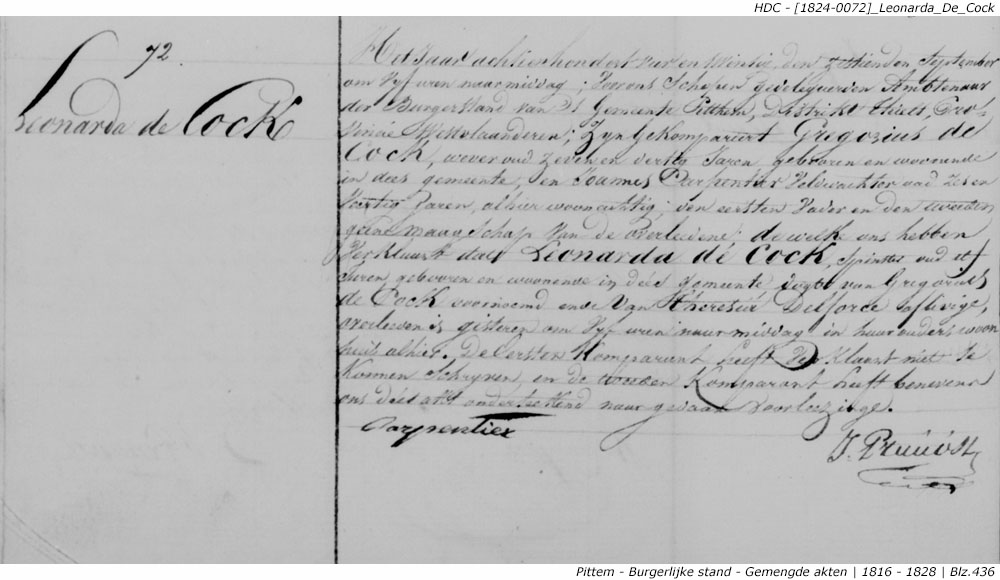 HDC - [1824-0072]_Leonarda_De_Cock
72.
Leonarda de Cock
Het Jaar achtienhondert vier en twintig, den September
om vyf uren naarmiddag; voor ons Schepen gedelegueerden Ambtenaar
der Burgerstand van de Gemeente Pitthem, Distrikt Thielt, Pro-
vincie Westvlaanderen; Zyn Gekompareert Gregorius de
Cock, wever oud zeven en dertig Jaren geboren en woonende
in dees gemeente, en Joannes Carpentier Veldwachter oud zes en
Jaren, alhier woonachtig; den eersten Vader en den tweeden
geene maagschap van de overledene; de welke ons hebben
verklaart dat Leonarda de Cock, Spinster oud
Jaren geboren en woonende in dees gemeente van Gregorius
de Cock voornoemd ende van Theresia Delforce
overleden is gisteren om vyf uren naarmiddag in haar ouders woon
huis alhier. De eersten Komparant heeft verklaart niet te
konnen Schryven, en de tweeden Komparant heeft benevens
ons dees akt onderteekend naar gedaan voorlezinge.
Carpentier
J. Pruuost
Pittem - Burgerlijke stand - Gemengde akten | 1816 - 1828 | Blz.436